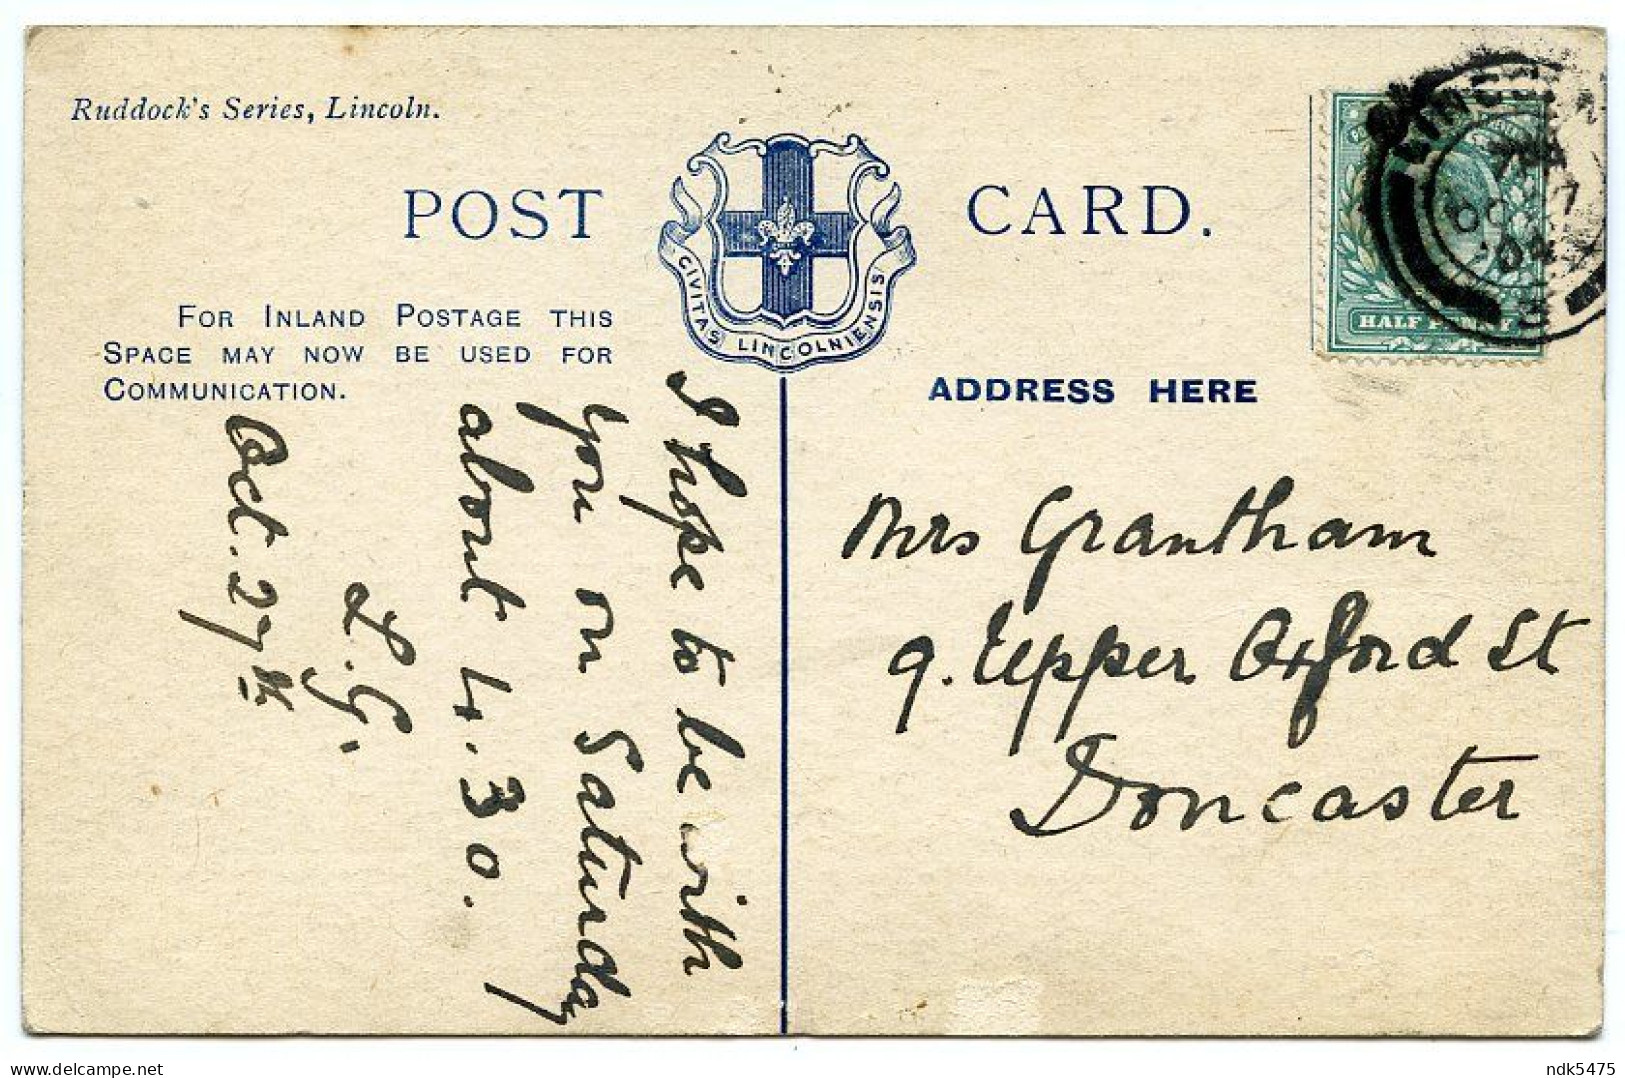 Ruddock's Series, Lincoln.
POST CARD.
CIVITAS LINCOLNIENSIS
FOR INLAND POSTAGE THIS
SPACE MAY NOW BE USED FOR
COMMUNICATION.
ADDRESS HERE
LINCOLN
OC 27
04
HALF PENNY
I hope to be with
you on Saturday
about 4.30.
L.G.
Oct. 27th
Mrs Grantham
9. Upper Oxford St
Doncaster
ndk5475